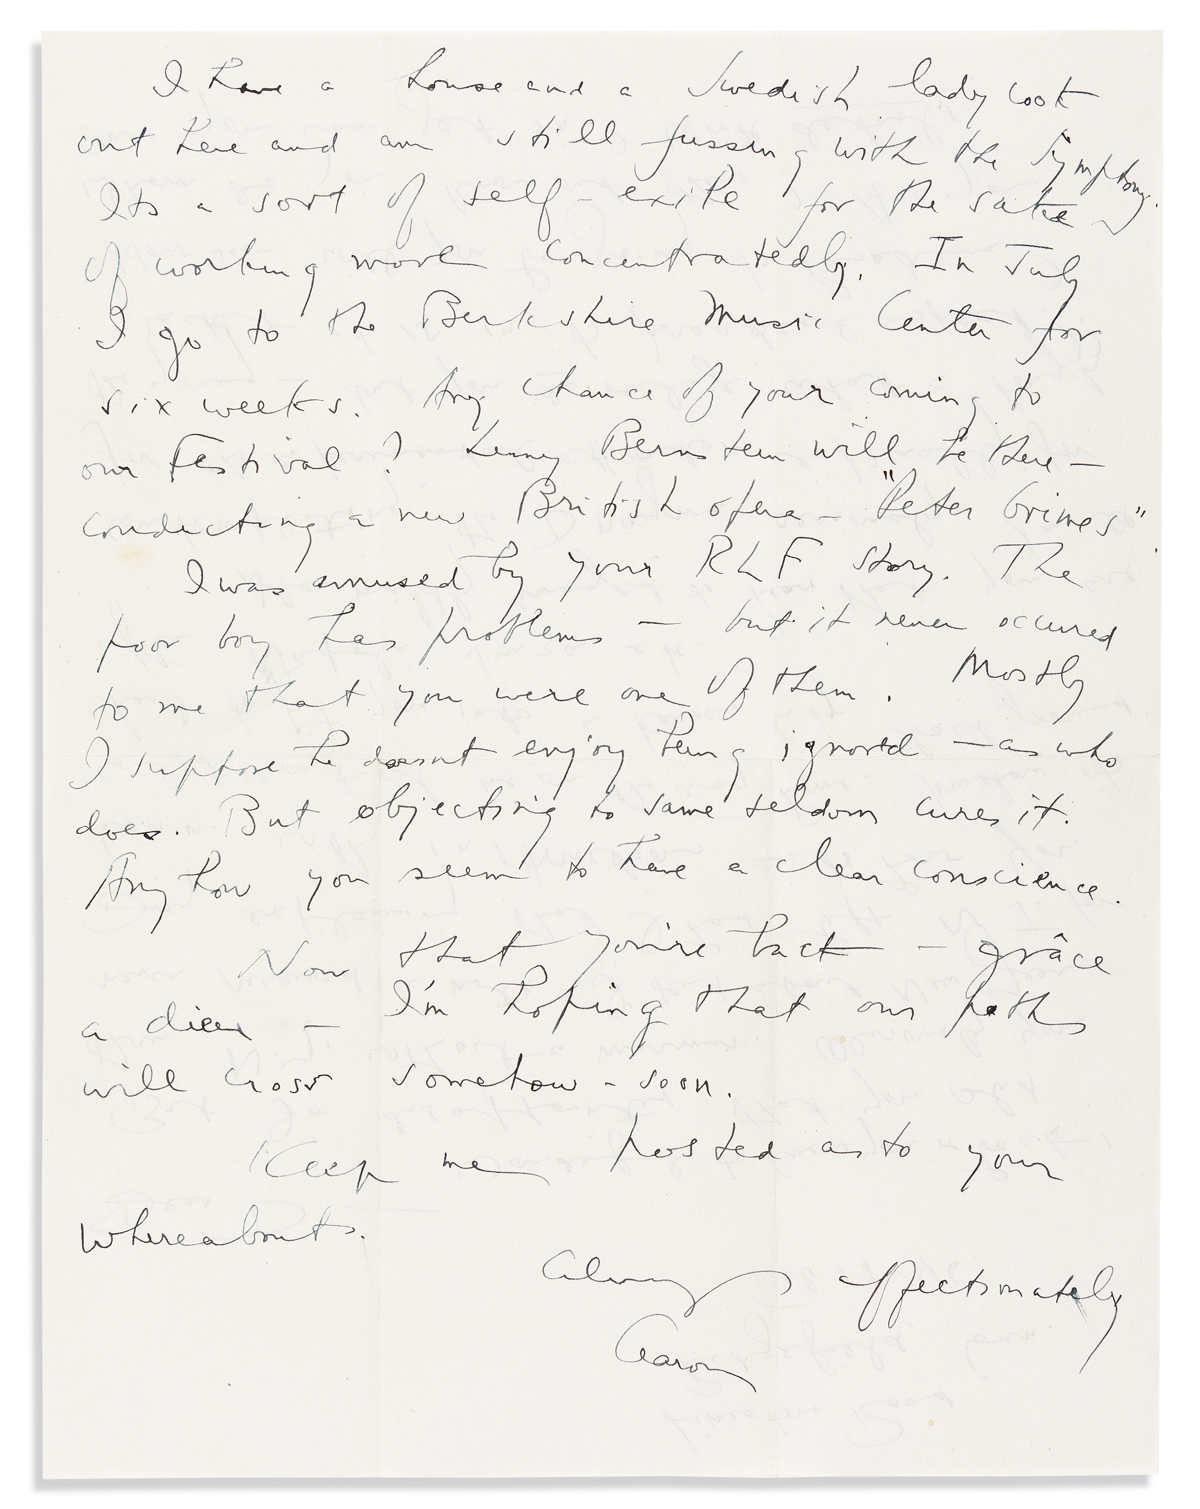 I have a house and a Swedish lady cook
out here and am still fussing with the Symphony.
Its a sort of self-exile for the sake
of working more concentratedly. In July
I go to the Berkshire Music Center for
six weeks. Any chance of your coming to
our Festival? Lenny Bernstein will be there —
conducting a new British opera — "Peter Grimes".
I was amused by your RLF story. The
poor boy has problems — but it never occured
to me that you were one of them. Mostly
I suppose he doesnt enjoy being ignored — as who
does. But objecting to same seldom cures it.
Anyhow you seem to have a clear conscience.
Now that you're back — grâce
a dieu — I'm hoping that our paths
will cross somehow - soon.
Keep me posted as to your
whereabouts.
Always affectionately
Aaron